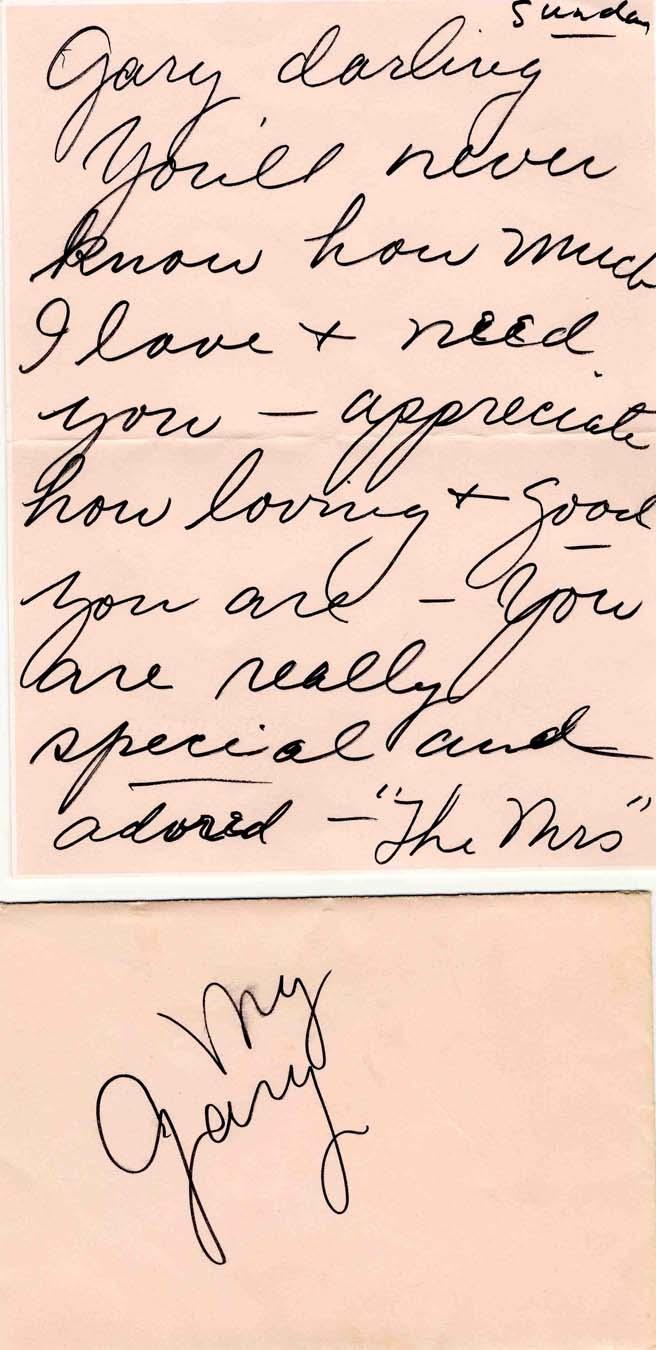 Sunday
Gary darling
You'll never
know how much
I love + need
you — appreciate
how loving + good
you are — You
are really
special and
adored — "The Mrs"
My
Gary